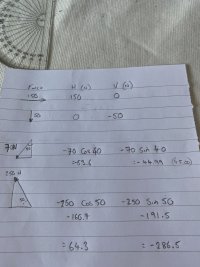 Force H (N) V (N)
150 150 0
50 0 -50
70N 40 -70 Cos 40 -70 Sin 40
= -53.6 = -44.99 (45.0)
250 N
50 -250 Cos 50 -250 Sin 50
-160.7 -191.5
= -64.3 = -286.5